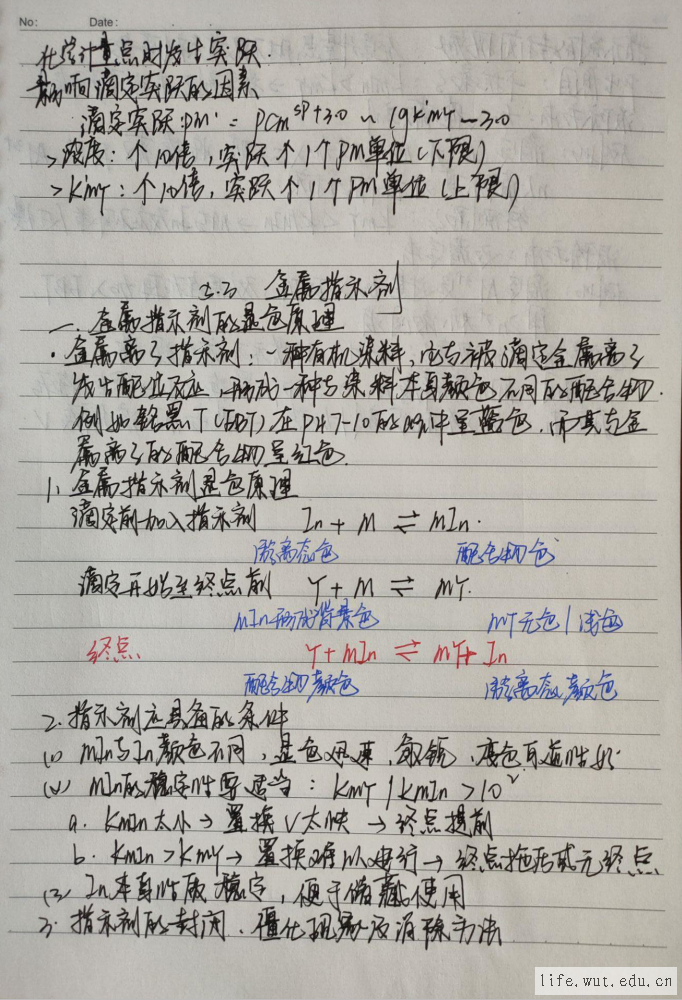 No: Date:
化学计量点时发生突跃
影响滴定突跃的因素
滴定突跃pM': pCMsp+3.0 ~ lgK'MY-3.0
>浓度: 个10倍, 突跃个1个PM单位 (下限)
>K'MY: 个10倍, 突跃个1个PM单位 (上限)
2.3 金属指示剂
一. 金属指示剂的显色原理
·金属离子指示剂: 一种有机染料, 它与被滴定金属离子
发生配位反应, 形成一种与染料本身颜色不同的配合物.
例如铬黑T (EBT) 在PH 7-10的 中呈蓝色, 而其与金
属离子的配合物呈红色.
1. 金属指示剂显色原理
滴定前加入指示剂 In + M ⇌ MIn.
游离态色 配合物色
滴定开始至终点前 Y + M ⇌ MY.
MIn形成背景色 MY无色 / 浅色
终点 Y+MIn ⇌ MY+ In
配合物颜色 游离态颜色
2. 指示剂应具备的条件
(1) MIn与In颜色不同, 显色迅速, 敏锐, 变色可逆性好
(2) MIn的稳定性要适当: KMY / KMIn > 10²
a. KMIn太小→置换V太快→终点提前
b. KMIn > KMY→置换难以进行→终点拖后或无终点
(3) In本身性质稳定, 便于储藏使用
3. 指示剂的封闭、僵化现象及消除方法
life.wut.edu.cn